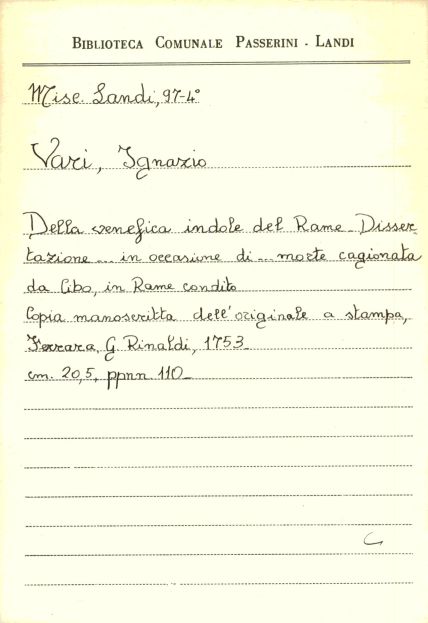 BIBLIOTECA COMUNALE PASSERINI - LANDI
Misc. Landi, 97-4°
Vari, Ignazio
Della venefica indole del Rame_ Disser-
tazione ... in occasione di ... morte cagionata
da Cibo, in Rame condito
Copia manoscritta dell'originale a stampa,
Ferrara, G. Rinaldi, 1753_
cm. 20,5, ppnn 110_